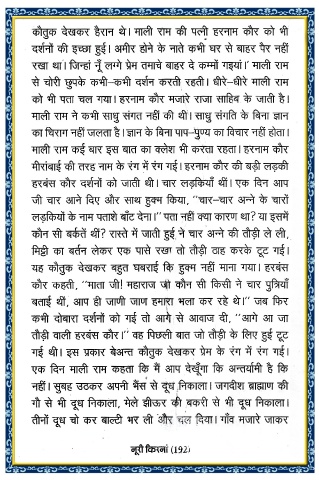 कौतुक देखकर हैरान थे। माली राम की पत्नी हरनाम कौर को भी
दर्शनों की इच्छा हुई। अमीर होने के नाते कभी घर से बाहर पैर नहीं
रखा था। जिन्हां नूँ लग्गे प्रेम तमाचे बाहर दे कम्मों गइयां।' माली राम
से चोरी छुपके कभी-कभी दर्शन करती रहती। धीरे-धीरे माली राम
को भी पता चल गया। हरनाम कौर मजारे राजा साहिब के जाती है।
माली राम ने कभी साधु संगत नहीं की थी। साधु संगति के बिना ज्ञान
का चिराग नहीं जलता है। ज्ञान के बिना पाप-पुण्य का विचार नहीं होता।
माली राम कई बार इस बात का क्लेश भी करता रहता। हरनाम कौर
मीरांबाई की तरह नाम के रंग में रंग गई। हरनाम कौर की बड़ी लड़की
हरबंस कौर दर्शनों को जाती थी। चार लड़कियाँ थीं। एक दिन आप
जी चार आने दिए और साथ हुक्म किया, "चार-चार अन्ने के चारों
लड़कियों के नाम पताशे बाँट देना।" पता नहीं क्या कारण था? या इसमें
कौन सी बर्कतें थीं? रास्ते में जाती हुई ने चार अन्ने की तौड़ी ले ली,
मिट्टी का बर्तन लेकर एक पासे रखा तो तौड़ी ठाह करके टूट गई।
यह कौतुक देखकर बहुत घबराई कि हुक्म नहीं माना गया। हरबंस
कौर कहती, "माता जी! महाराज जी कौन सी किसी ने चार पुत्रियाँ
बताई थीं, आप ही जाणी जाण हमारा भला कर रहे थे।" जब फिर
कभी दोबारा दर्शनों को गई तो आगे से आवाज दी, "आगे आ जा
तौड़ी वाली हरबंस कौर।" वह पिछली बात जो तौड़ी के लिए हुई टूट
गई थी। इस प्रकार बेअन्त कौतुक देखकर प्रेम के रंग में रंग गई।
एक दिन माली राम कहता कि मैं आप देखूँगा कि अन्तर्यामी है कि
नहीं। सुबह उठकर अपनी भैंस से दूध निकाला। जगदीश ब्राह्मण की
गौ से भी दूध निकाला, मेले झीऊर की बकरी से भी दूध निकाला।
तीनों दूध चो कर बाल्टी भर ली और चल दिया। गाँव मजारे जाकर
नूरी किरनां (192)